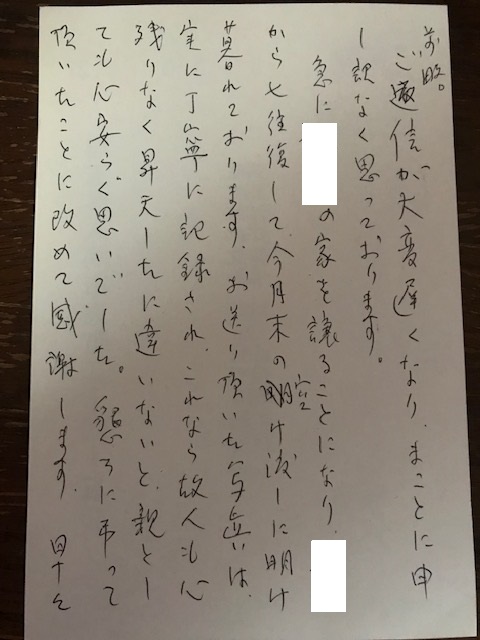 前略。
ご返信が大変遅くなり、まことに申
し訳なく思っております。
急に
の家を譲ることになり、
から七往復して、今月末の空け渡しに明け
暮れております。お送り頂いた写真は、
実に丁寧に記録され、これなら故人も心
残りなく昇天したに違いないと、親とし
ても心安らぐ思いでした。懇ろに弔って
頂いたことに改めて感謝します。早々